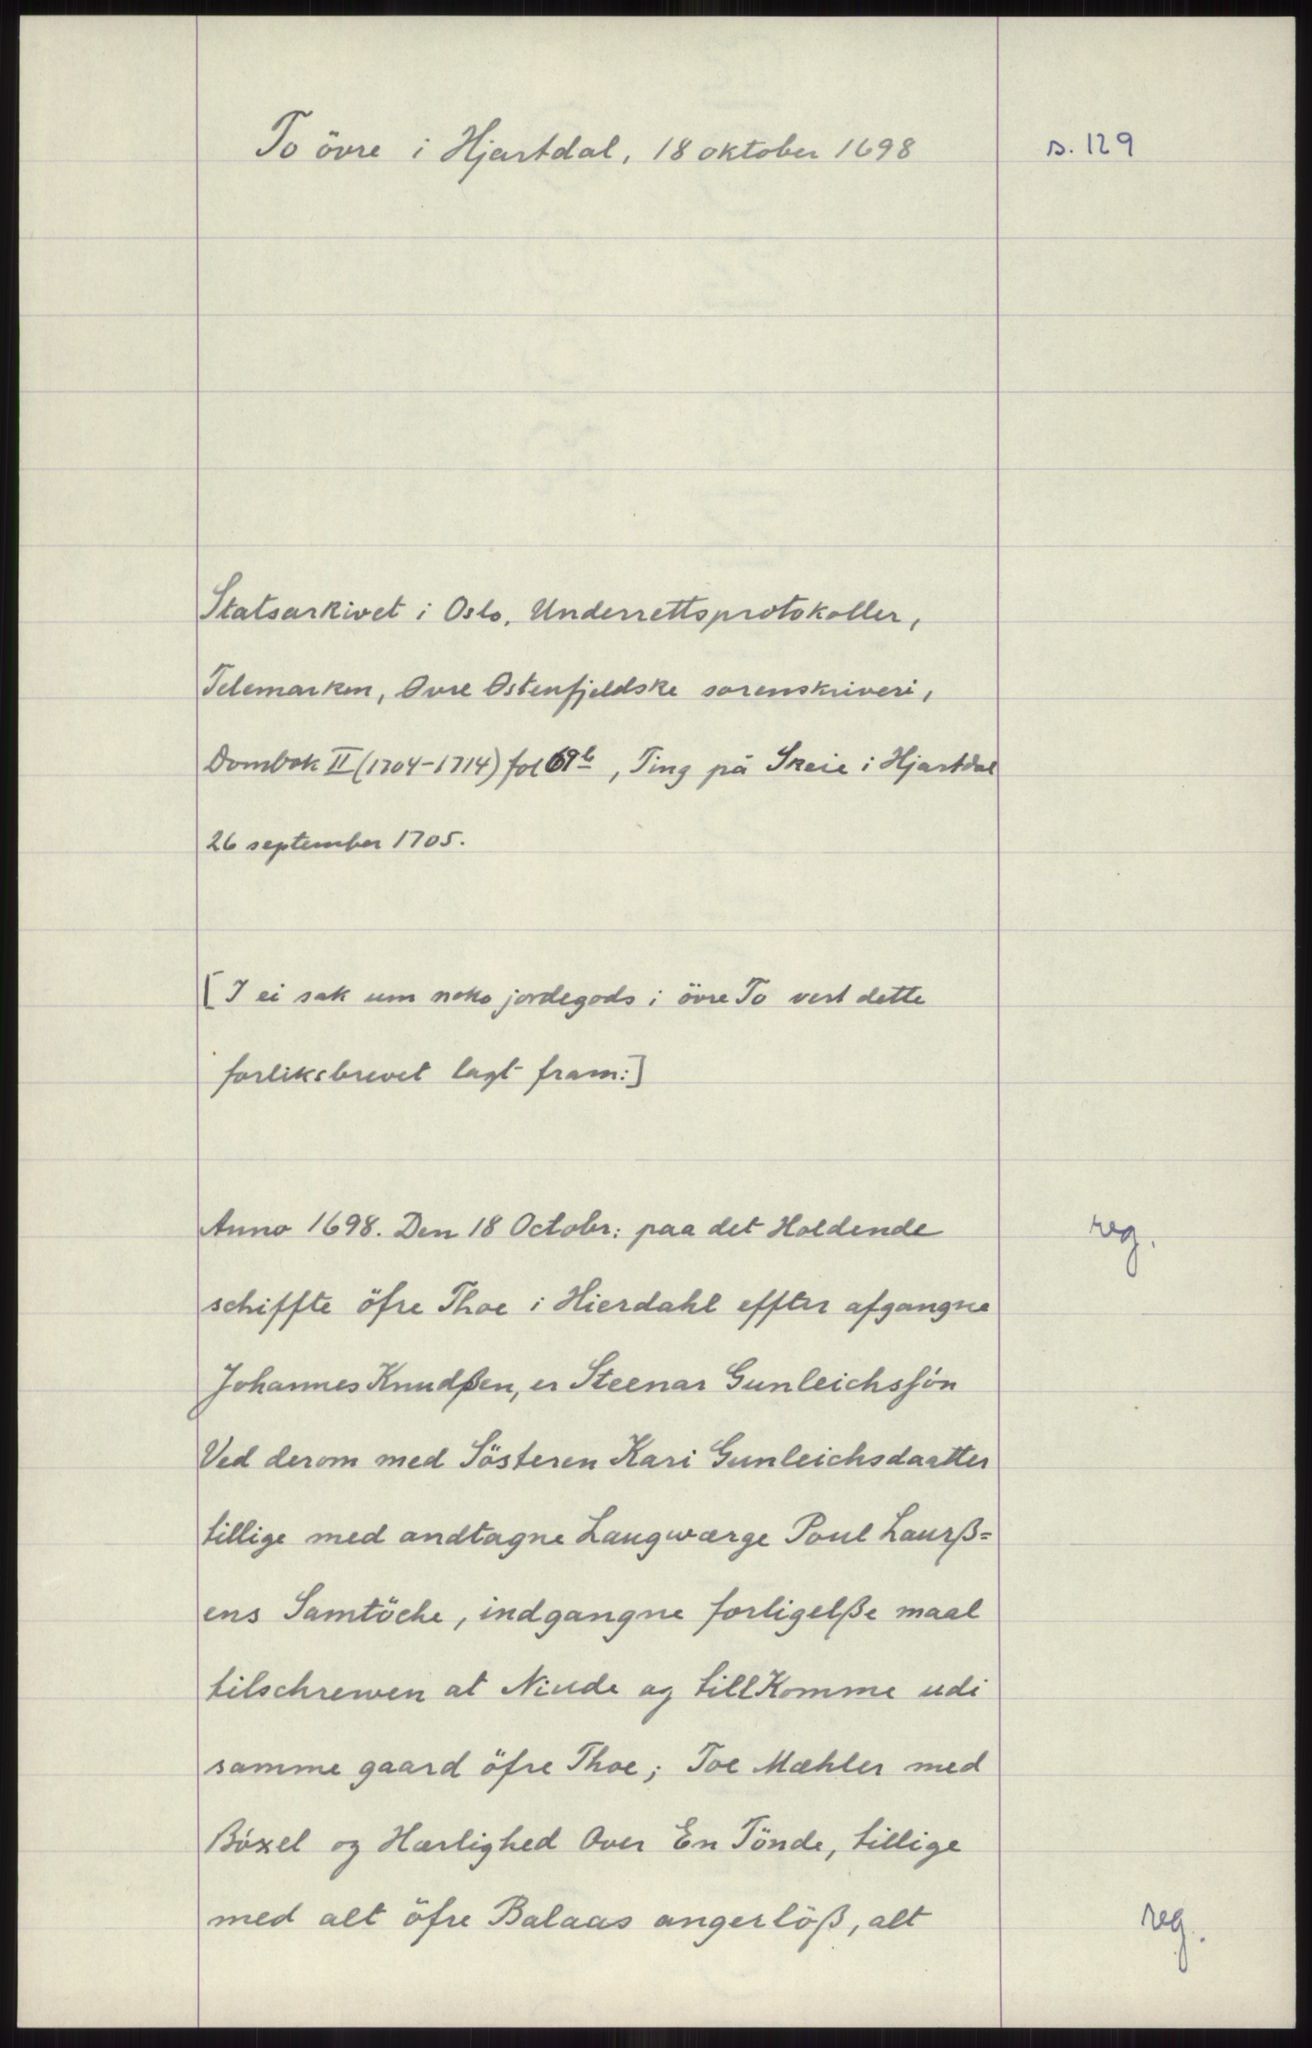 To övre i Hjartdal, 18 oktober 1698
s. 129
Statsarkivet i Oslo. Underrettsprotokoller,
Telemarken, Øvre Østenfjeldske sorenskriveri,
Dombok II (1704-1714) fol 69b, Ting på Skeie i Hjartdal
26 september 1705.
[I ei sak um noko jordegods i övre To vert dette
forliksbrevet lagt fram:]
Anno 1698. Den 18 Octobr: paa det Holdende
reg.
schiffte öfre Thoe i Hierdahl effter afgangne
Johannes Knudßen, er Steenar Gunleichssön
Ved derom med Søsteren Kari Gunleichsdaatter
tillige med andtagne Laugwærge Poul Laurß=
ens Samtöche, indgangne forligelße maal
tilschrewen at Niude og tillKomme udi
samme gaard öfre Thoe; Toe Mæhler med
Böxel og Hærlighed Over En Tönde, tillige
med alt öfre Balaas angerlöß, alt
reg.